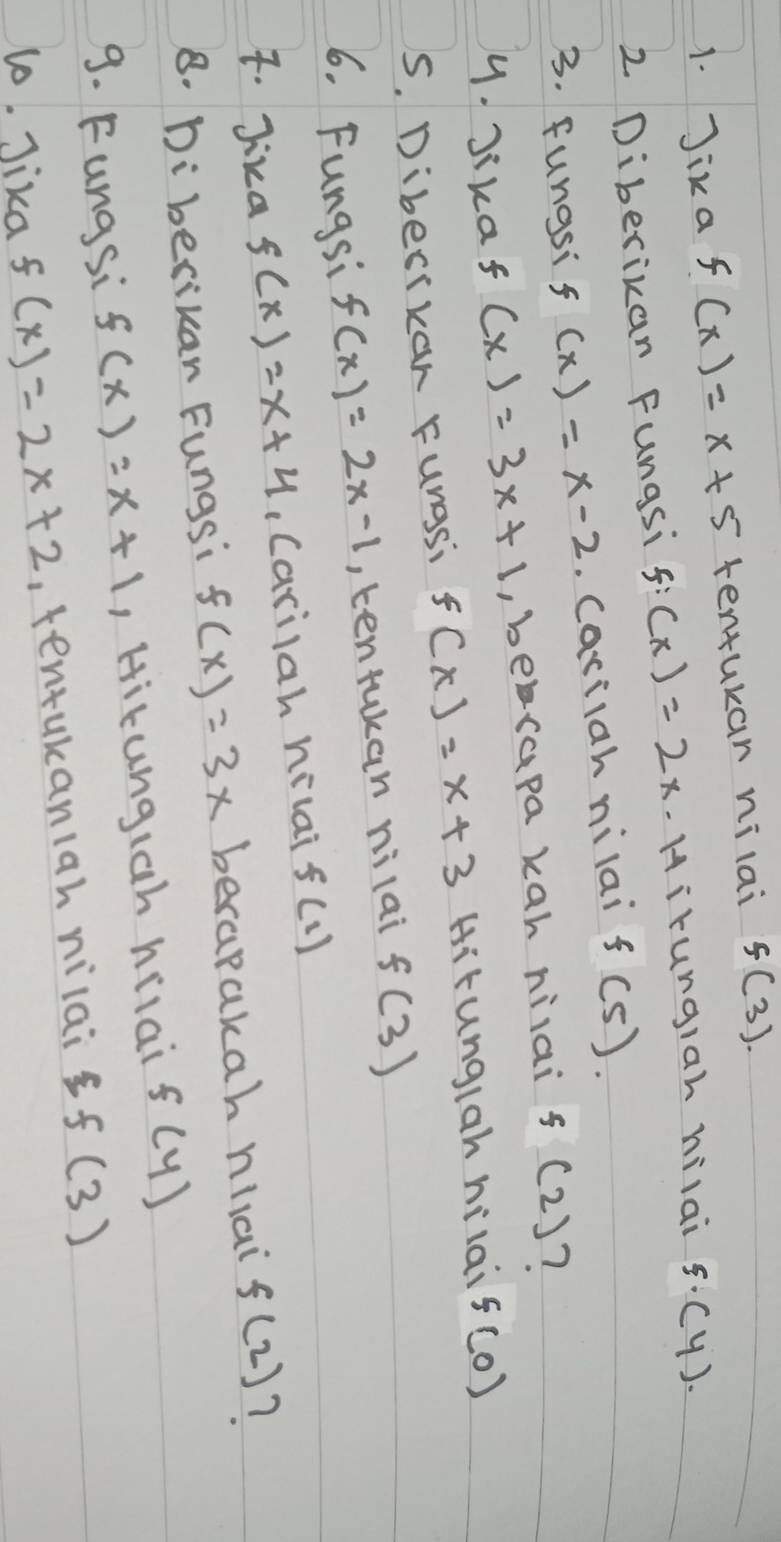 1. Jika f(x) = x + 5 tentukan nilai f(3).
2 Diberikan Fungsi f:(x) = 2x. Hitunglah nilai f:(4).
3. Fungsi f(x) = x - 2. Carilah nilai f(5).
4. Jika f(x) = 3x + 1, berapa kah nilai f(2)?
5. Diberikan Fungsi f(x) = x + 3 Hitunglah nilai f(0)
6. Fungsi f(x) = 2x - 1, tentukan nilai f(3)
7. Jika f(x) = x + 4, Carilah nilai f(1)
8. Diberikan Fungsi f(x) = 3x berapakah nilai f(2)?
9. Fungsi f(x) = x + 1, Hitunglah nilai f(4)
10. Jika f(x) = 2x + 2, tentukanlah nilai f(3)